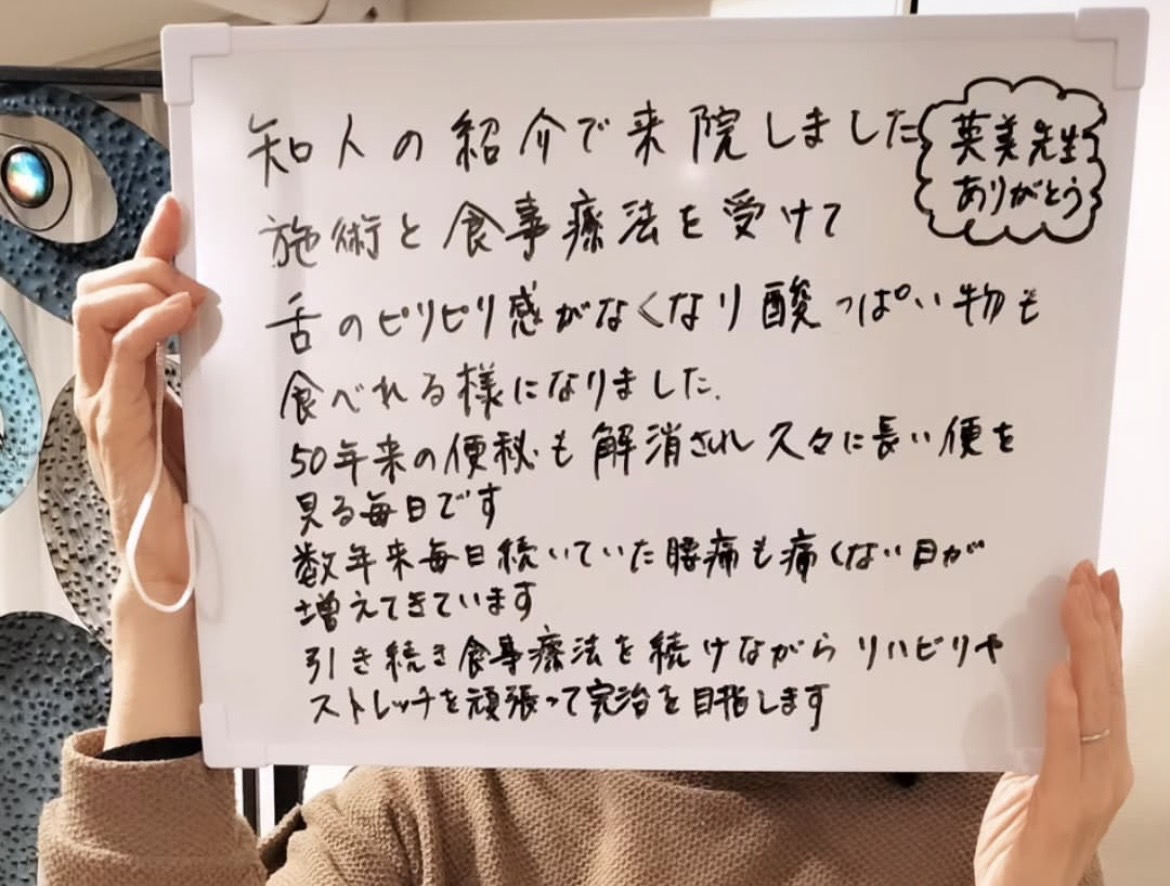 知人の紹介で来院しました
英美先生
ありがとう
施術と食事療法を受けて
舌のピリピリ感がなくなり酸っぱい物も
食べれる様になりました.
50年来の便秘も解消され久々に長い便を
見る毎日です
数年来毎日続いていた腰痛も痛くない日が
増えてきています
引き続き食事療法を続けながらリハビリや
ストレッチを頑張って完治を目指します